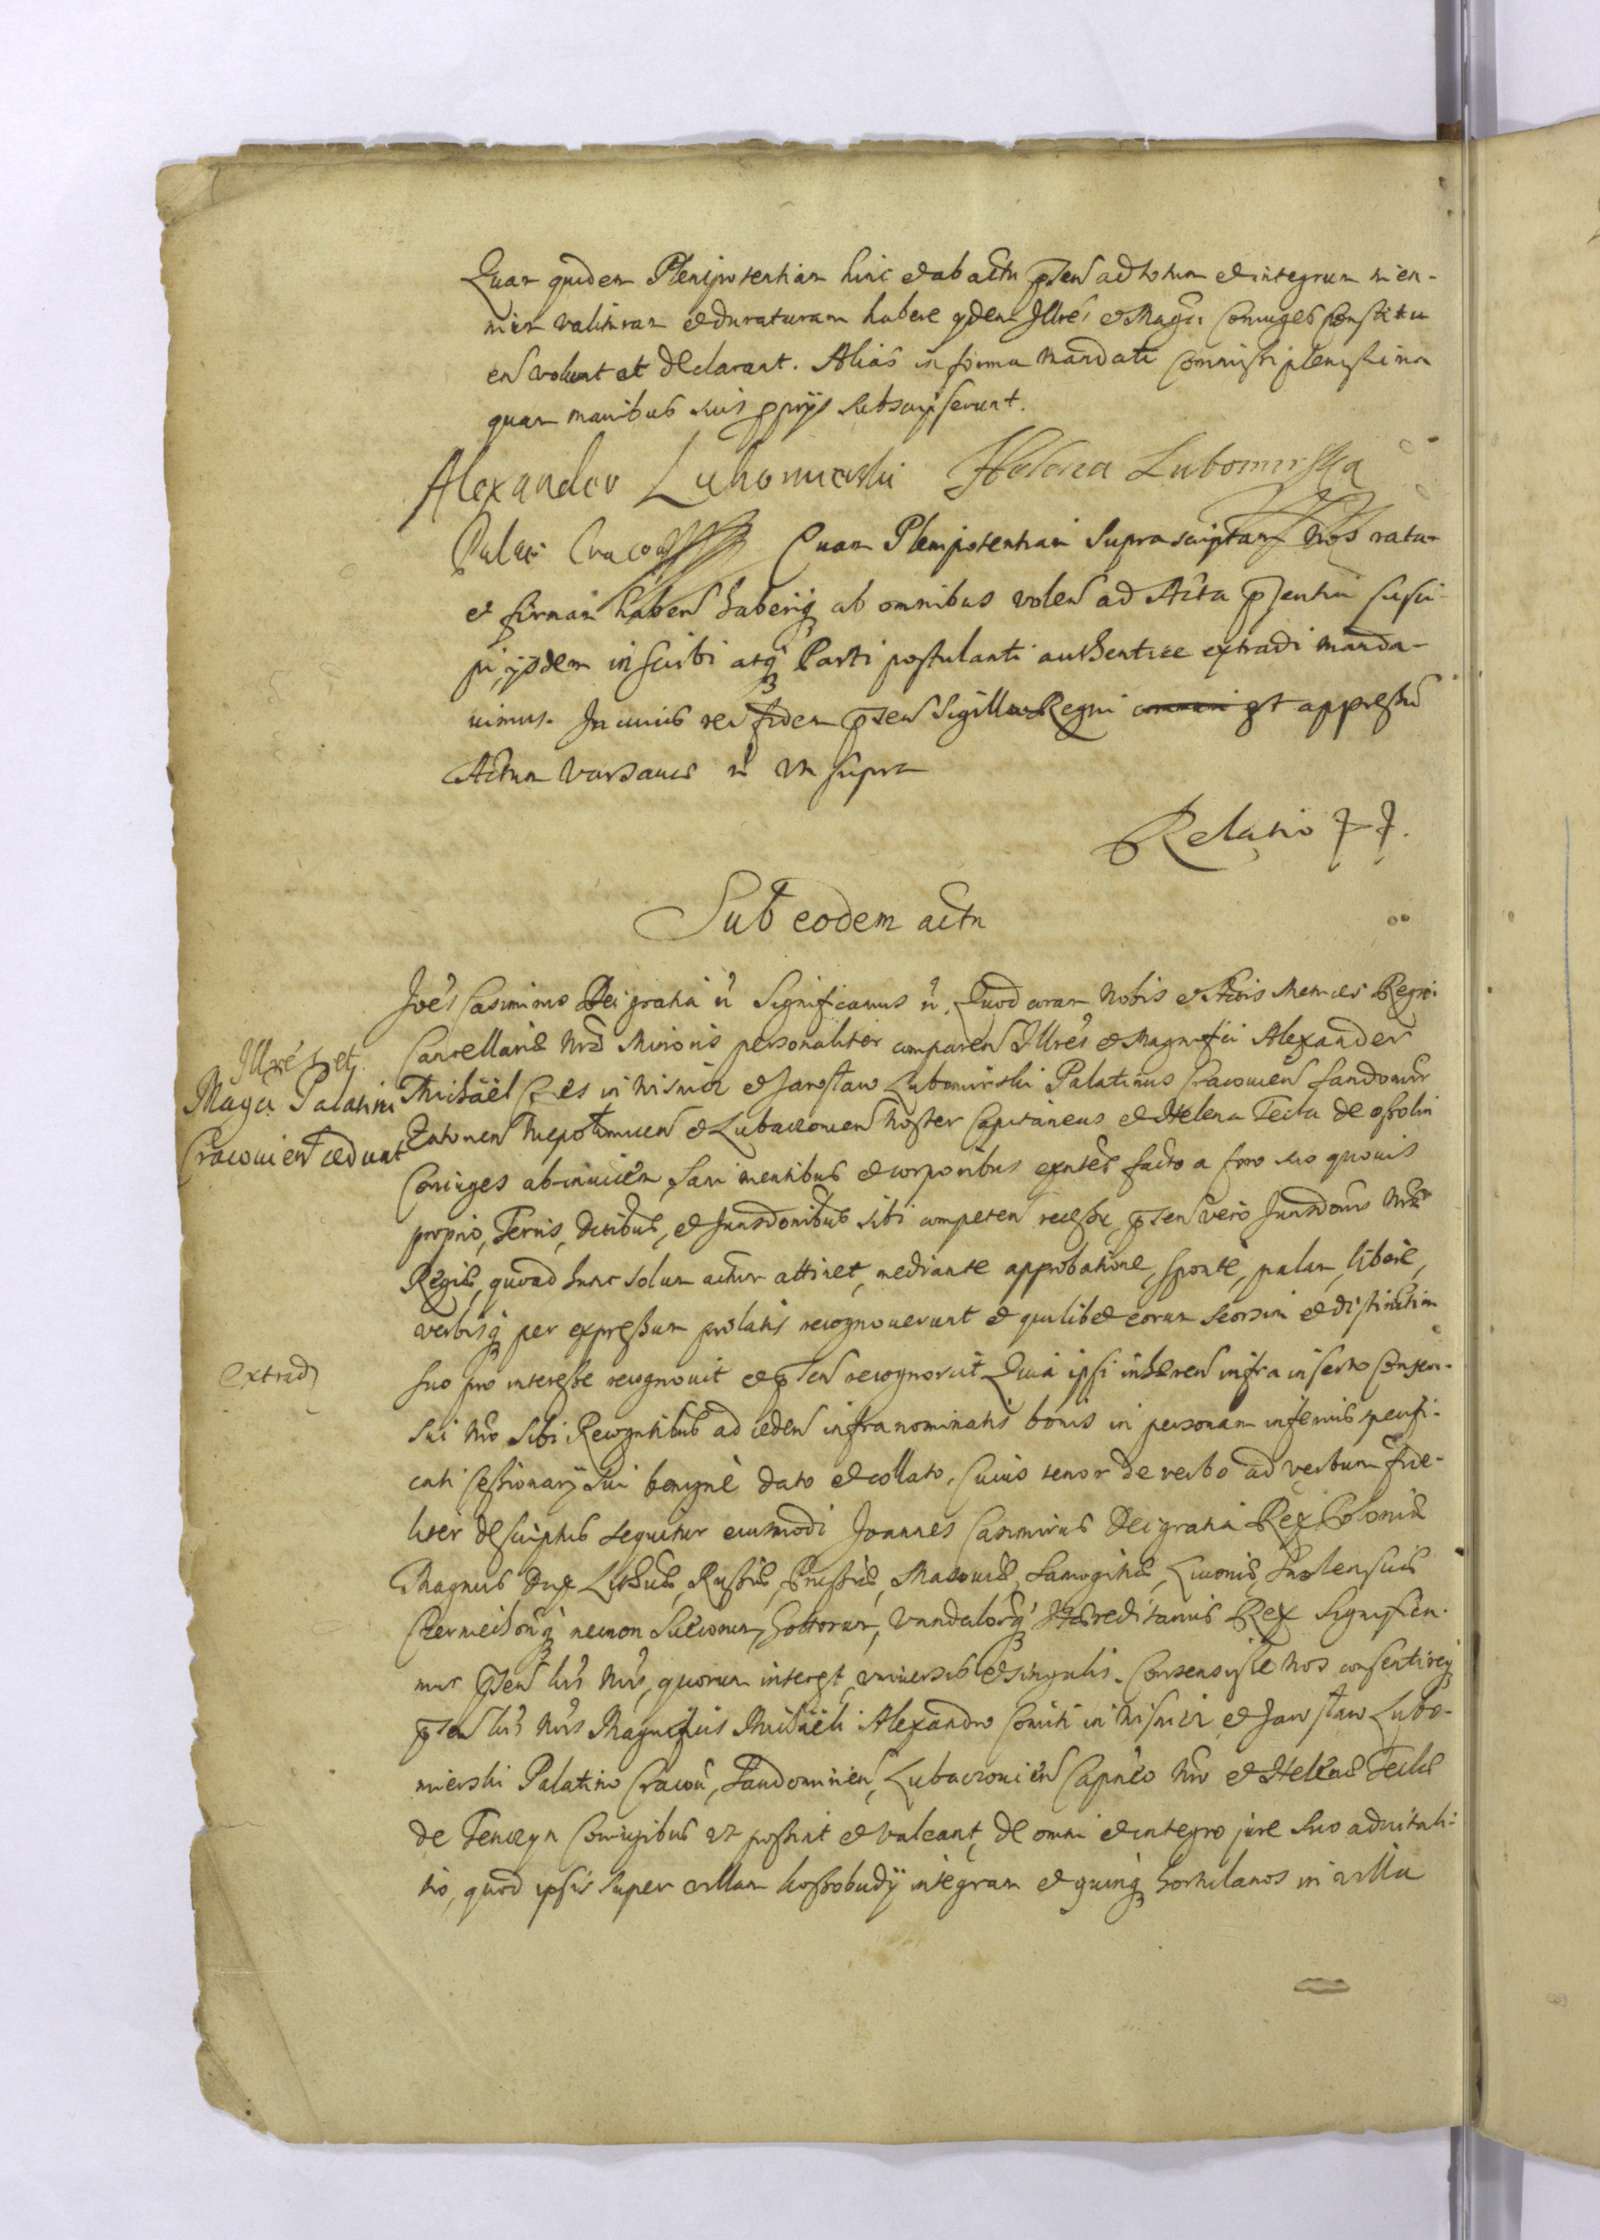 Quam quidem Plenipotentiam hinc et ab actu pñten ad totum et integrum trien-
nium valituram et duraturam habere ÿdem Illres et Magci Coniuges constitu
en volunt et declarant. Alias in forma Mandati Commissi plenissima
quam manibus suis pprijs subscripserunt.
Alexander Lubomierski Helena Lubomirska
Palat: Cracou
Quam Plenipotentiam suprascriptam Nos ratam
et firmam haben haberiq ab omnibus volen ad Acta pñsentia susci-
pi, ijsdem inscribi atq Parti postulanti authentice extradi manda-
uimus. In cuius rei fidem pñten Sigillum Regni est appressum
Actum Varsauiæ ut supra
Relatio
Sub eodem actu
Joēs Casimirus Dei gratia Significamus Quod coram Nobis et Actis Metrices Regni
Cancellariæ Nræ Minoris personaliter comparen Illres et Magnifici Alexander
Michäel Comes in Wisnicz et Jarosław Lubomirski Palatinus Cracouien Sandomir
Zatorien Niepołomicen et Lubaczouien Noster Capitaneus et Helena Tecla de Ossolin
Coniuges ab inuicem, sani mentibus et corporibus exntes facto a foro suo quouis
proprio, Terris, Ditibus, et Jurisdonibus sibi competen recessu, pñten vero Jurisdoni Nræ
Regiæ, quoad hunc solum actum attinet, mediante approbatione, sponte, palam, libere,
verbisq per expressum prolatis recognouerunt et quilibet eorum seorsim et distinctim
suo pro interesse recognouit et pñten recognoscit Quia ipsi inhæren infra inserto Consen-
sui Nro sibi Recogntibus ad ceden infranominatis bonis in personam inferius specifi-
cati Cessionarij sui benigne dato et collato, Cuius tenor de verbo ad verbum fide-
liter descriptus sequitur eiusmodi Joannes Casimirus Dei gratia Rex Poloniæ
Magnus Dux Lithuæ, Russiæ, Prussiæ, Masouiæ, Samogitiæ, Liuoniæ, Smolensciæ
Czerniechouq necnon Suecorum, Gottorum, Vandalorq Hæreditarius Rex Significa-
mus pñten lris Nris, quorum interest, vniuersis et singulis. Consensisse Nos consentireq
pñten lris Nris Magnificis Michäeli Alexandro Comiti in Wisnicz et Jarosław Lubo-
mierski Palatino Cracou, Sandomirien, Lubaczouien Capneo Nro et Helenæ Teclæ
de Tenczyn Coniugibus ut possint et valeant, de omni et integro jure suo aduitali-
tio, quod ipsis super villam Kossobudÿ integram et quinq hortulanos in villa
Illres et
Magci Palatini
Cracouien cedunt
extrad